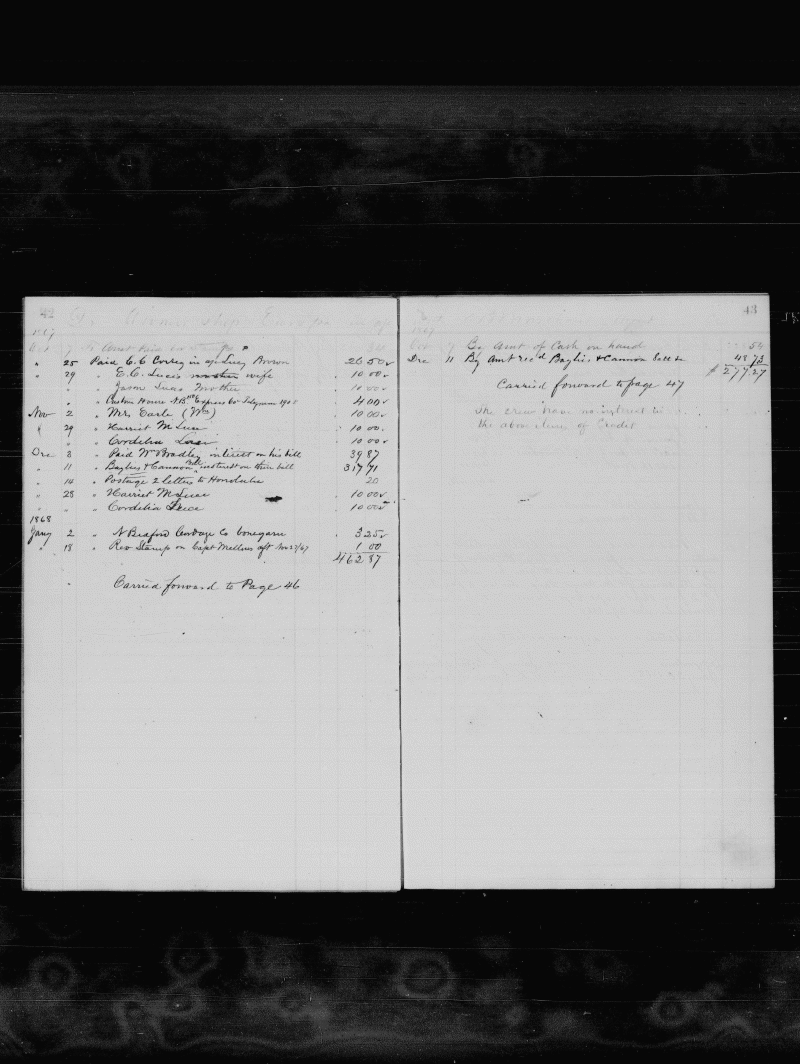 42
1867
" 25 Paid C. C. Corey in a/c Lucy Brown 26 50
" 29 " E. C. Luce's mother wife 10 00
" Jason Luces Mother 10 00
" Custom House N.B. Express Co 4 00
Nov 2 " Mrs Earle (Wm) 10 00
" 29 " Harriet M Luce 10 00
" Cordelia Luce 10 00
Dec 8 " Paid Wm Bradley interest on his bill 39 87
" 11 " Baylies & Cannon interest on their bill 317 71
" 14 " Postage 2 letters to Honolulu 20
" 28 " Harriet M Luce 10 00
" " Cordelia Luce 10 00
1868
Jany 2 " N Bedford Cordage Co 3 25
" 18 " Rev Stamp on Capt 1 00
462 87
" Carried forward to Page 46
43
1867
Oct 7 By Amt of Cash on hand 54
Dec 11 By Amt rec'd Baylies & Cannon 48 73
$ 277 27
Carried forward to page 47
The crew have no interest in
the above items of Credit